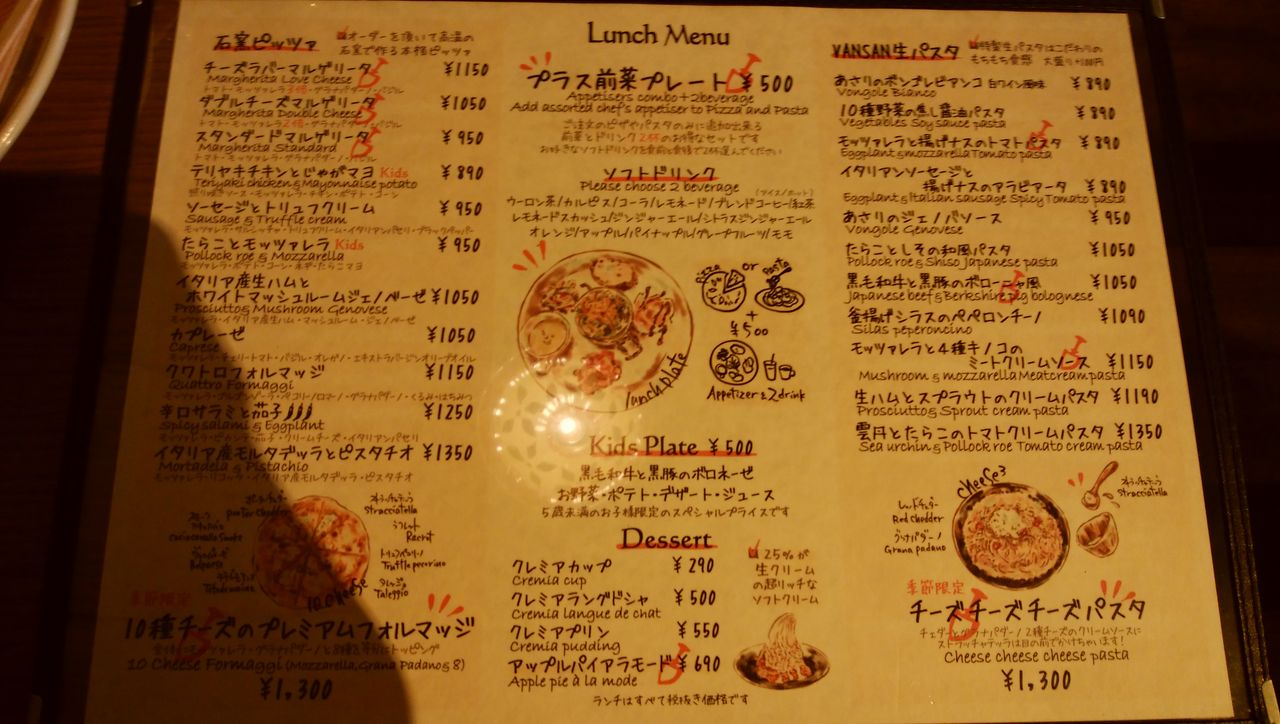 石窯ピッツァ
オーダーを頂いて高温の
石窯で作る本格ピッツァ
チーズラバーマルゲリータ ¥1150
Margherita Love Cheese
トマト・モッツァレラ3倍・グラナパダーノ・バジル
ダブルチーズマルゲリータ ¥1050
Margherita Double Cheese
トマト・モッツァレラ2倍・グラナパダーノ・バジル
スタンダードマルゲリータ ¥950
Margherita Standard
トマト・モッツァレラ・グラナパダーノ・バジル
テリヤキチキンとじゃがマヨ Kids ¥890
Teriyaki chicken&Mayonnaise potato
照り焼きソース・モッツァレラ・チキン・ポテト・コーン
ソーセージとトリュフクリーム ¥950
Sausage & Truffle cream
モッツァレラ・サルシッチャ・トリュフクリーム・イタリアンパセリ・ブラックペッパー
たらことモッツァレラ Kids ¥950
Pollock roe & Mozzarella
モッツァレラ・ポテト・コーン・ネギ・たらこマヨ
イタリア産生ハムと
ホワイトマッシュルームジェノベーゼ ¥1050
Prosciutto&Mushroom Genovese
モッツァレラ・イタリア産生ハム・マッシュルーム・ジェノベーゼ
カプレーゼ ¥1050
Caprese
モッツァレラ・チェリートマト・バジル・オレガノ・エキストラバージンオリーブオイル
クワトロフォルマッジ ¥1150
Quattro Formaggi
モッツァレラ・ゴルゴンゾーラ・ペコリーノロマーノ・グラナパダーノ・くるみ・はちみつ
辛口サラミと茄子 ¥1250
Spicy salami & Eggplant
モッツァレラ・ピカンテ・茄子・クリームチーズ・イタリアンパセリ
イタリア産モルタデッラとピスタチオ ¥1350
Mortadela & Pistachio
モッツァレラ・リコッタ・イタリア産モルタデッラ・ピスタチオ
Stracciatella
Truffle pecorino
Taleggio
10 Cheese
季節限定
10種チーズのプレミアムフォルマッジ
10 Cheese Formaggi (Mozzarella,Grana Padano&8)
¥1,300
Lunch Menu
プラス前菜プレート ¥500
Appetisers combo+2beverage
Add assorted chef's appetiser to Pizza and Pasta
ご注文のピザやパスタのみに追加出来る
前菜とドリンク2杯のお得なセットです
お好きなソフトドリンクを食前と食後で2杯選んでください
ソフトドリンク
Please choose 2 beverage
(アイス/ホット)
ウーロン茶/カルピス/コーラ/レモネード/ブレンドコーヒー/紅茶
レモネードスカッシュ/ジンジャーエール/シトラスジンジャーエール
オレンジ/アップル/パイナップル/グレープフルーツ/モモ
lunch plate
pizza or pasta
+
¥500
Appetizer & 2drink
Kids Plate ¥500
黒毛和牛と黒豚のボロネーゼ
お野菜・ポテト・デザート・ジュース
5歳未満のお子様限定のスペシャルプライスです
Dessert
クレミアカップ ¥290
Cremia cup
クレミアラングドシャ ¥500
Cremia langue de chat
クレミアプリン ¥550
Cremia pudding
アップルパイアラモード ¥690
Apple pie à la mode
25%が
生クリーム
の超リッチな
ソフトクリーム
ランチはすべて税抜き価格です
VANSAN生パスタ
特製生パスタはこだわりの
もちもち食感 大盛り+100円
あさりのボンゴレビアンコ 白ワイン風味 ¥890
Vongole Bianco
10種野菜の焦し醤油パスタ ¥890
Vegetables Soy sauce pasta
モッツァレラと揚げナスのトマトパスタ ¥890
Eggplant&mozzarella Tomato pasta
イタリアンソーセージと
揚げナスのアラビアータ ¥890
Eggplant&Italian sausage Spicy Tomato pasta
あさりのジェノバソース ¥950
Vongole Genovese
たらことしその和風パスタ ¥1050
Pollock roe&Shiso Japanese pasta
黒毛和牛と黒豚のボローニャ風 ¥1050
Japanese beef&Berkshire pig bolognese
釜揚げシラスのペペロンチーノ ¥1090
Silas peperoncino
モッツァレラと4種キノコの
ミートクリームソース ¥1150
Mushroom & mozzarella Meatcream pasta
生ハムとスプラウトのクリームパスタ ¥1190
Prosciutto&Sprout cream pasta
雲丹とたらこのトマトクリームパスタ ¥1350
Sea urchin&Pollock roe Tomato cream pasta
cheese3
ストラッチャテッラ
Stracciatella
レッドチェダー
Red chedder
グラナパダーノ
Grana padano
季節限定
チーズチーズチーズパスタ
チェダーとグラナパダーノ2種チーズのクリームソースに
ストラッチャテッラは目の前でかけちゃいます!
Cheese cheese cheese pasta
¥1,300